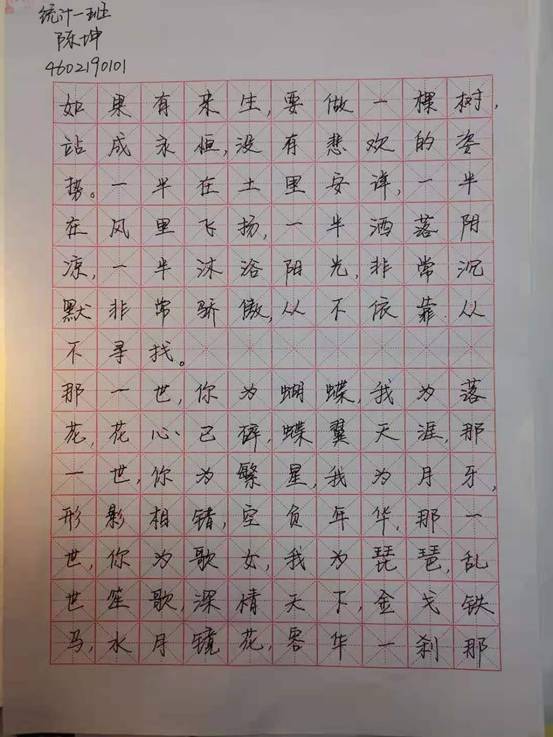 统计一班
陈坤
4602190101
如果有来生,要做一棵树,
站成永恒,没有悲欢的姿
势。一半在土里安详,一半
在风里飞扬,一半洒落阴
凉,一半沐浴阳光,非常沉
默非常骄傲,从不依靠.从
不寻找。
那一世,你为蝴蝶,我为落
花,花心已碎,蝶翼天涯,那
一世,你为繁星,我为月牙,
形影相错,空负年华,那一
世,你为歌女,我为琵琶,乱
世笙歌,深情天下,金戈铁
马,水月镜花,容华一刹那